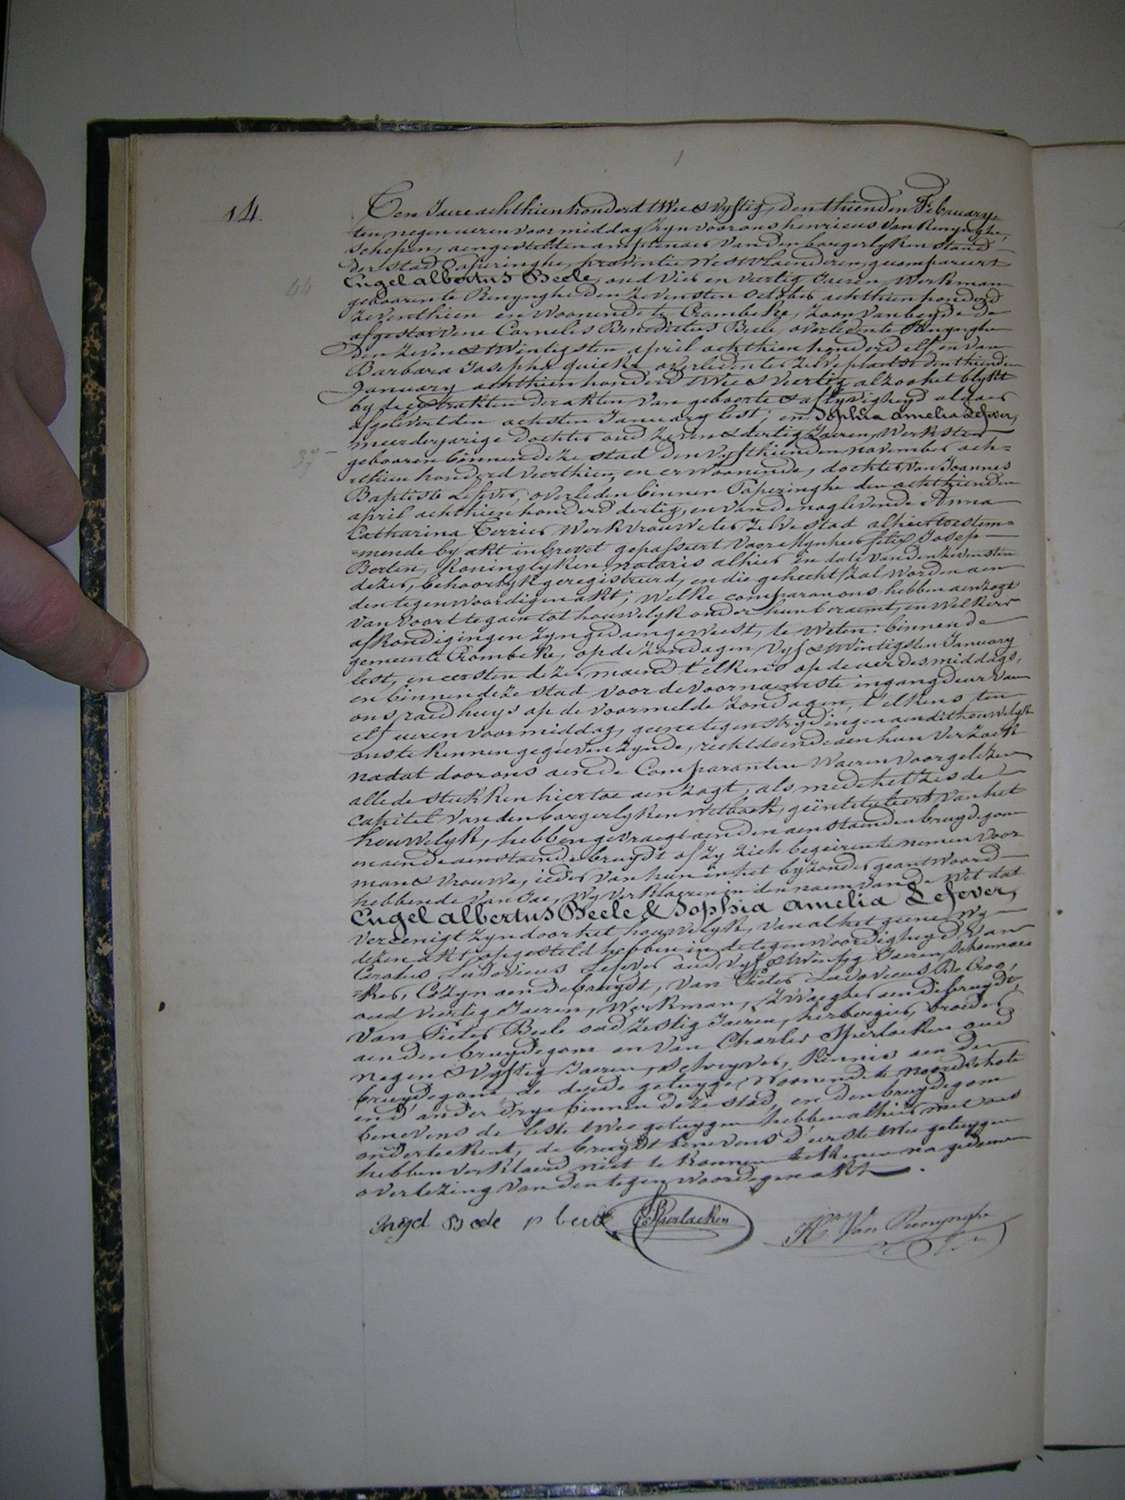 1
14
Ten Jaere achthien honderd twee & vyftig, den thienden February
ten negen ueren voormiddag zyn voor ons henricus Van Renynghe,
schepen, aengestelden amptenaer van den borgerlyken stand
der stad Poperinghe, provintie Westvlaenderen, gecompareert
44
Engel albertus Beele, oud Vier en veertig Jaeren, Werkman
gebooren te Renynghe den zevensten october achthien honderd
zeventhien en woonende te Crombeke, zoon van beyde de
afgestorvene Cornelis Benedictus Beele, overleden te Renynghe
den zeven & twintigsten april achthien honderd elf en van
Barbara Josepha quicke overleden ter zelve plaetse den thienden
January achthien honderd twee & veertig alzoo het blykt
by de extrakten der akten van geboorte & aflyvigheyd aldaer
afgeleverd den achsten January lest; en Sophia amelia Lefever,
37
meerderjarige dochter oud zeven & dertig Jaeren, Werkster
gebooren binnen deze stad den vyfthienden november ach=
thien honderd veerthien, en er woonende, dochter van Joannes
Baptiste Lefever, overleden binnen Poperinghe den achthienden
april achthien honderd dertig, en van de nog levende Anna
Catharina Terrier Werkvrouwe ter zelve stad alhier toestem=
=mende by akt in brevet gepasseert voor mynheer Felix Josep
Berten, koninglyken notaris alhier in date van den zevensten
dezer, behoorlyk geregistreerd, en die gehecht zal worden aen
den tegenwoordigen akt; Welke comparanons hebben aenzogt
van voort te gaen tot houwelyk onder hun beraemt, en welkers
afkondigingen zyn gedaen geweest, te Weten: binnen de
gemeente Crombeke, op de zondagen, Vyf & twintigsten January
lest, en eersten dezer maend t'elkens op de uer des middags,
en binnen deze stad voor de voornaemste ingangdeur van
ons raedhuys op de voormelde zondagen, t'elkens ten
elf ueren voormiddag, geene tegenstrydingen aen dit houwelyk
ons te kennen gegeven zynde, rechtdoende aen hun Verzoek
na dat door ons aen de Comparanten Waeren voorgelezen
alle de stukken hier toe aenzogt, als mede het zesde
capitel van den borgerlyken wetboek, geintituleert van het
houwelyk, hebben gevraegt aen den aenstaenden bruydegom
en aen de aenstaende bruydt of zy zich begeiren te nemen voor
man & vrouwe, ieder van hun in het byzonder geantwoord
hebbende van Jae, Wy Verklaeren in den naem van de Wet dat
Engel albertus Beele & Sophia amelia Lefever,
vereenigt zyn door het houwelyk, van al het geene Wy
dezen akt opgesteld hebben in de tegenwoordigheyd van
Carolus Ludovicus Lefever oud vyf & twintig Jaeren, schoenmae
ker, Cozyn aen de bruydt, van Pieter Ludovicus De Croo,
oud veertig Jaeren, Werkman, zweegher aen de bruydt,
van Pieter Beele oud zestig Jaeren, herbergier, broeder
aen den bruydegom en van Charles Sperlaeken oud
negen & vyftig Jaeren, schryver, kennis aen den
bruydegom, de derde getuyge, Woonende te noordschote
en d'ander drye binnen deze stad, en den bruydegom
benevens de leste twee getuygen hebben alhier met ons
onderteekent, de bruydt benevens d'eerste twee getuygen
hebben verklaerd niet te konnen teekenen na gedaene
overlezing van den tegenwoordigen akt.
Ingel Beele p beele C Sperlaeken Hri Van Renynghe